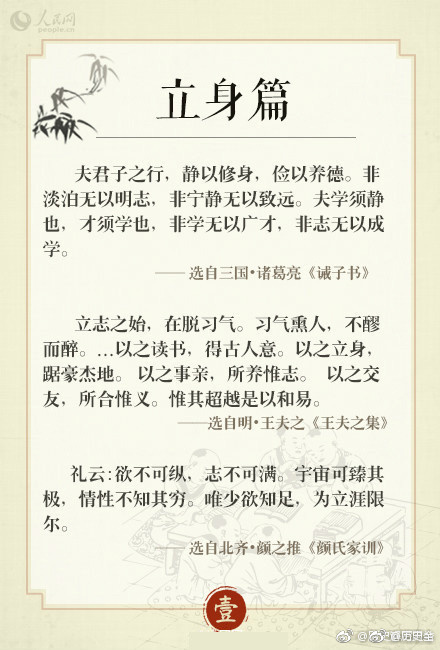 人民网
people.cn
立身篇
夫君子之行，静以修身，俭以养德。非
淡泊无以明志，非宁静无以致远。夫学须静
也，才须学也，非学无以广才，非志无以成
学。
—— 选自三国•诸葛亮《诫子书》
立志之始，在脱习气。习气熏人，不醪
而醉。…以之读书，得古人意。以之立身，
踞豪杰地。 以之事亲，所养惟志。 以之交
友，所合惟义。惟其超越是以和易。
——选自明•王夫之《王夫之集》
礼云:欲不可纵，志不可满。宇宙可臻其
极，情性不知其穷。唯少欲知足，为立涯限
尔。
—— 选自北齐•颜之推《颜氏家训》
壹